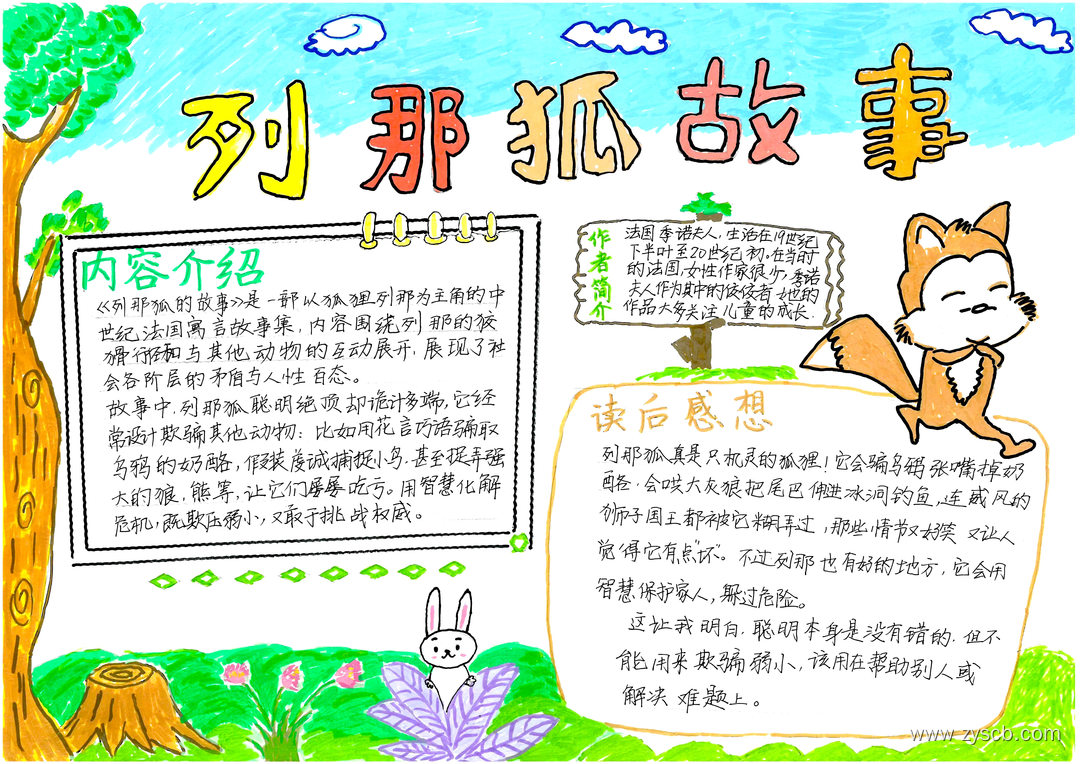 列那狐故事
内容介绍
《列那狐的故事》是一部以狐狸列那为主角的中
世纪法国寓言故事集,内容围绕列那的狡
猾行径和与其他动物的互动展开,展现了社
会各阶层的矛盾与人性百态。
故事中,列那狐聪明绝顶却诡计多端,它经
常设计欺骗其他动物:比如用花言巧语骗取
乌鸦的奶酪,假装虔诚捕捉小鸟,甚至捉弄强
大的狼,熊等,让它们屡屡吃亏。用智慧化解
危机,既欺压弱小,又敢于挑战权威。
作者简介
法国季诺夫人,生活在19世纪
下半叶至20世纪初。在当时
的法国,女性作家很少,季诺
夫人作为其中的佼佼者,她的
作品大多关注儿童的成长.
读后感想
列那狐真是只机灵的狐狸!它会骗乌鸦张嘴掉奶
酪,会哄大灰狼把尾巴伸进冰洞钓鱼,连威风的
狮子国王都被它糊弄过,那些情节又好笑又让人
觉得它有点"坏"。不过列那也有好的地方,它会用
智慧保护家人,躲过危险。
这让我明白,聪明本身是没有错的,但不
能用来欺骗弱小,该用在帮助别人或
解决难题上。
www.zyscb.com